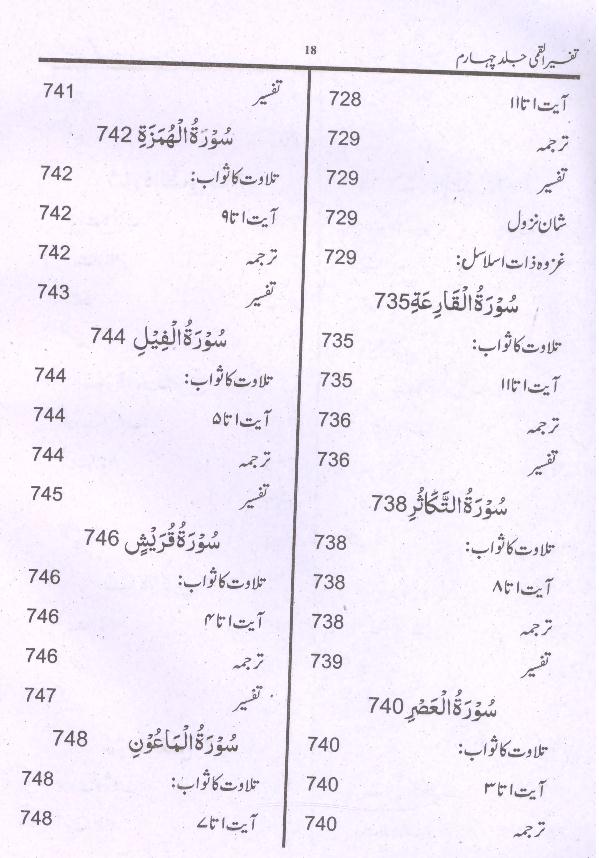 تفسیر القمی جلد چہارم
18
آیت ۱ تا ۱۱ 728
ترجمہ 729
تفسیر 729
شان نزول 729
غزوہ ذات اسلاسل: 729
سُوْرَةُ الْقَارِعَةِ 735
تلاوت کا ثواب: 735
آیت ۱ تا ۱۱ 735
ترجمہ 736
تفسیر 736
سُوْرَةُ التَّكَاثُرِ 738
تلاوت کا ثواب: 738
آیت ۱ تا ۸ 738
ترجمہ 738
تفسیر 739
سُوْرَةُ الْعَصْرِ 740
تلاوت کا ثواب: 740
آیت ۱ تا ۳ 740
ترجمہ 740
تفسیر 741
سُوْرَةُ الْهُمَزَةِ 742
تلاوت کا ثواب: 742
آیت ۱ تا ۹ 742
ترجمہ 742
تفسیر 743
سُوْرَةُ الْفِيْلِ 744
تلاوت کا ثواب: 744
آیت ۱ تا ۵ 744
ترجمہ 744
تفسیر 745
سُوْرَةُ قُرَيْشٍ 746
تلاوت کا ثواب: 746
آیت ۱ تا ۴ 746
ترجمہ 746
تفسیر 747
سُوْرَةُ الْمَاعُوْنِ 748
تلاوت کا ثواب: 748
آیت ۱ تا ۷ 748